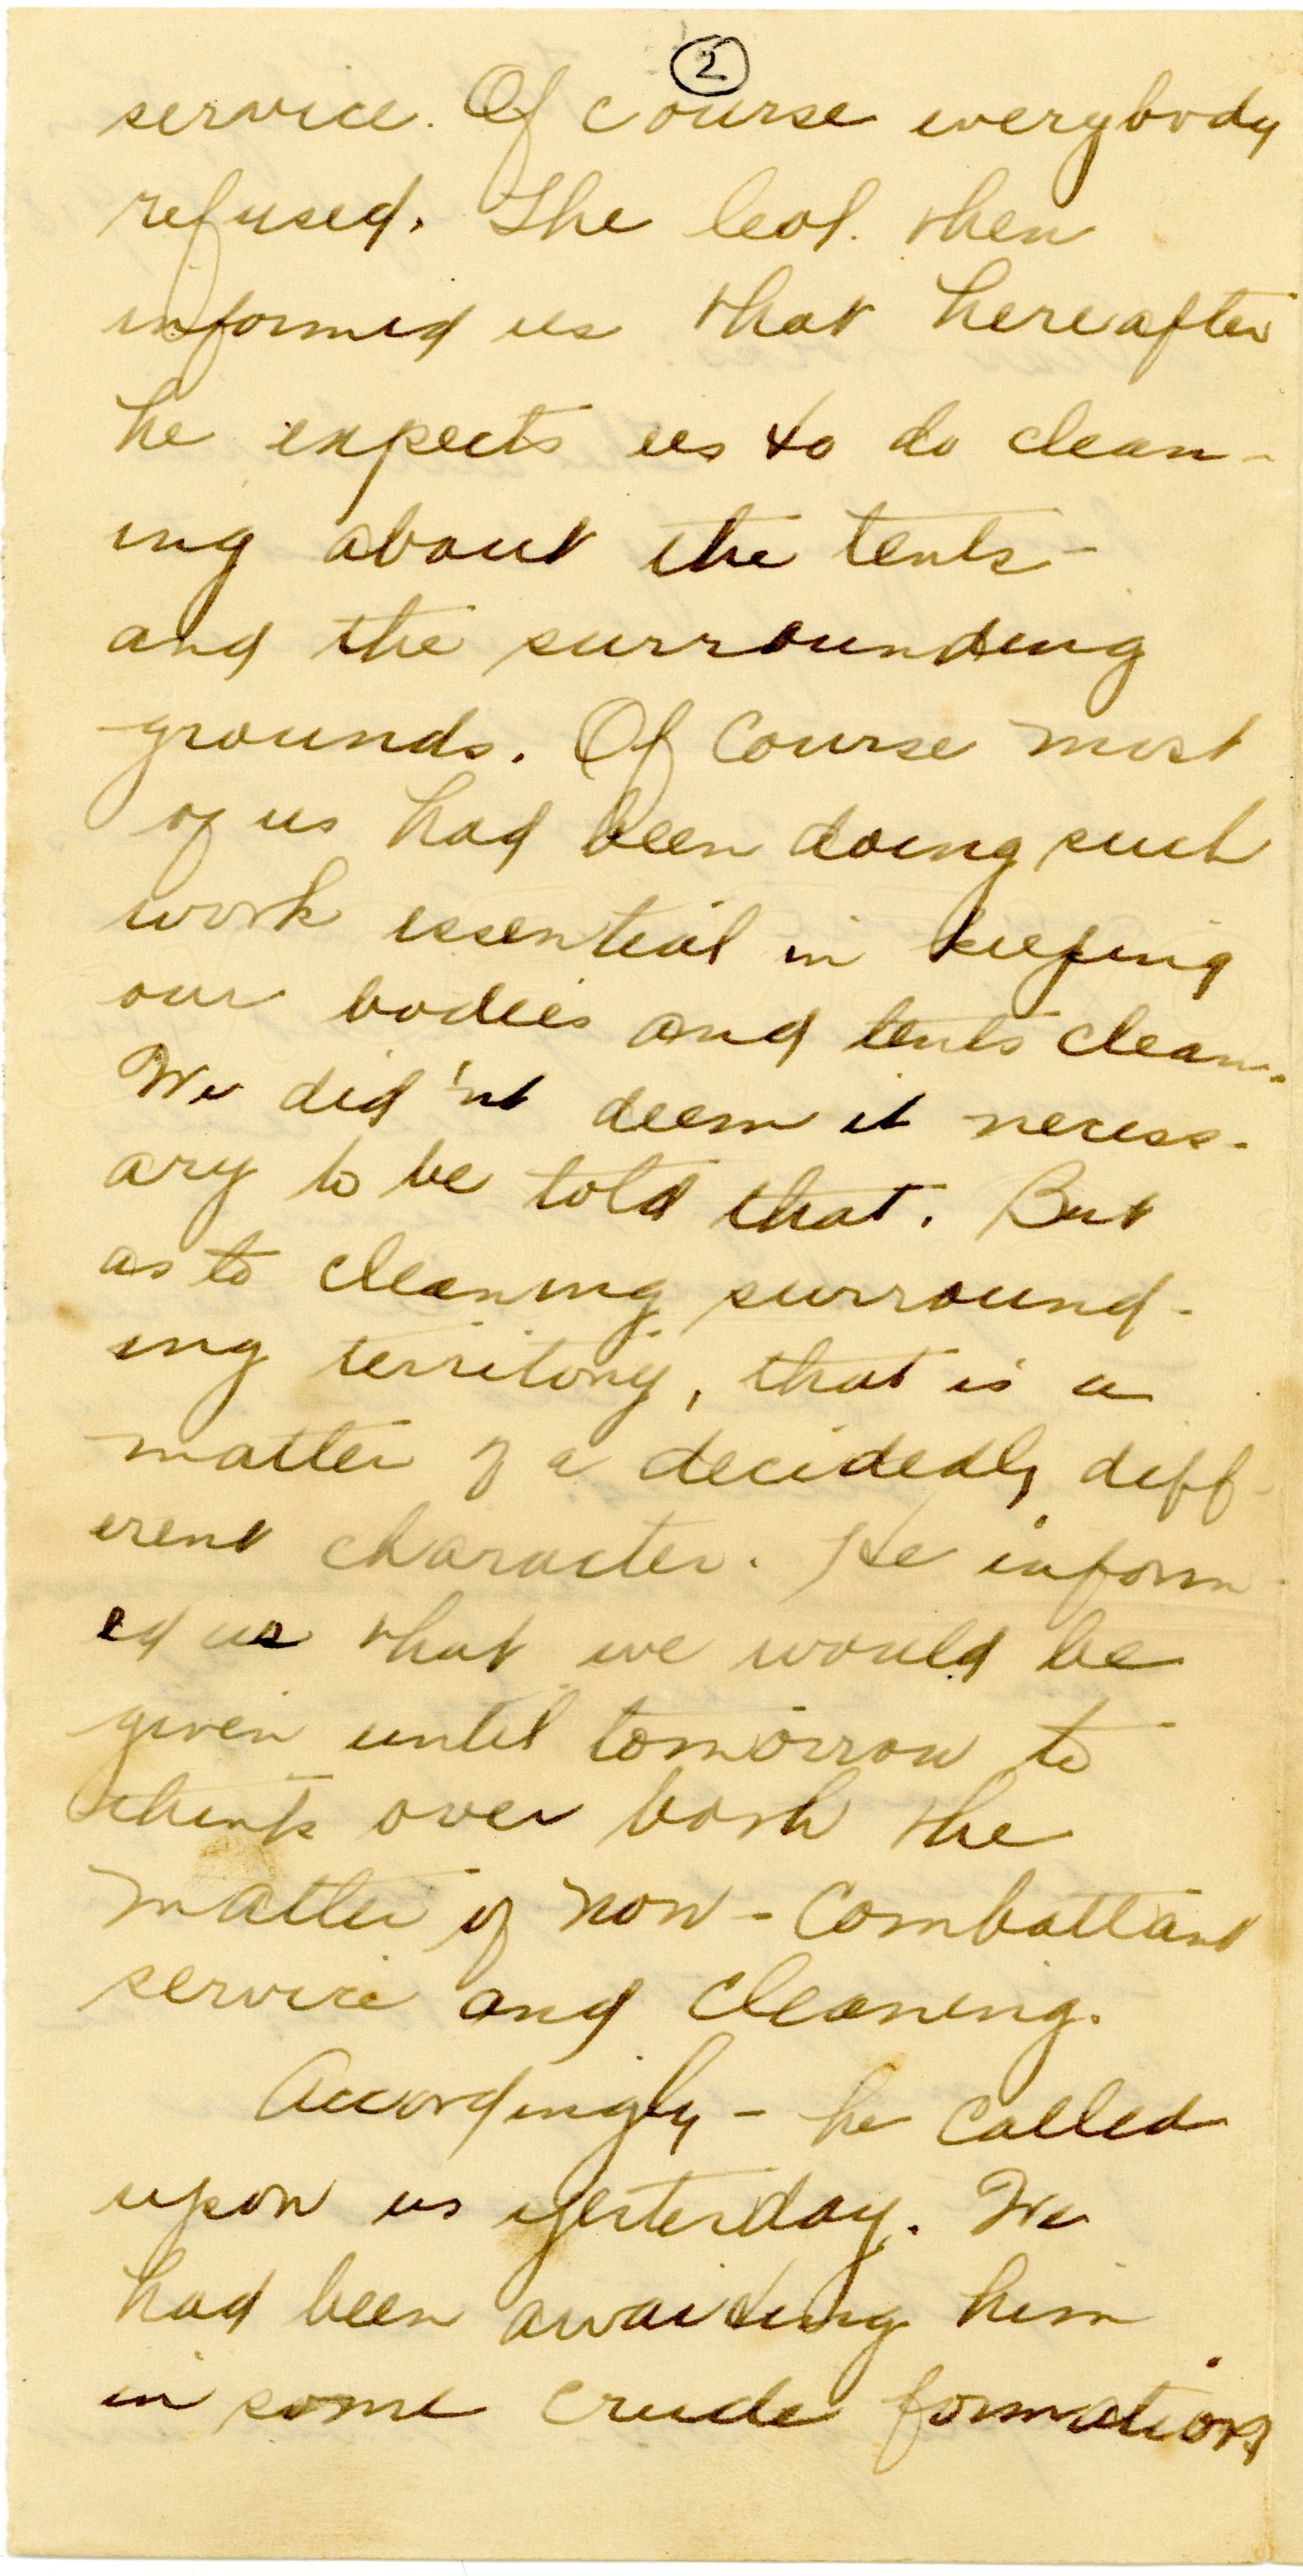 2
service. Of course everybody
refused. The Col. then
informed us that hereafter
he expects us to do clean-
ing about the tents -
and the surrounding
grounds. Of Course most
of us had been doing such
work essential in keeping
our bodies and tents clean.
We did'nt deem it necess-
ary to be told that. But
as to cleaning surround-
ing territory, that is a
matter of a decidedly diff-
erent character. He inform-
ed us that we would be
given until tomorrow to
think over both the
matter of non-Combattant
service and Cleaning.
Accordingly - he Called
upon us yesterday. We
had been awaiting him
in some crude formation